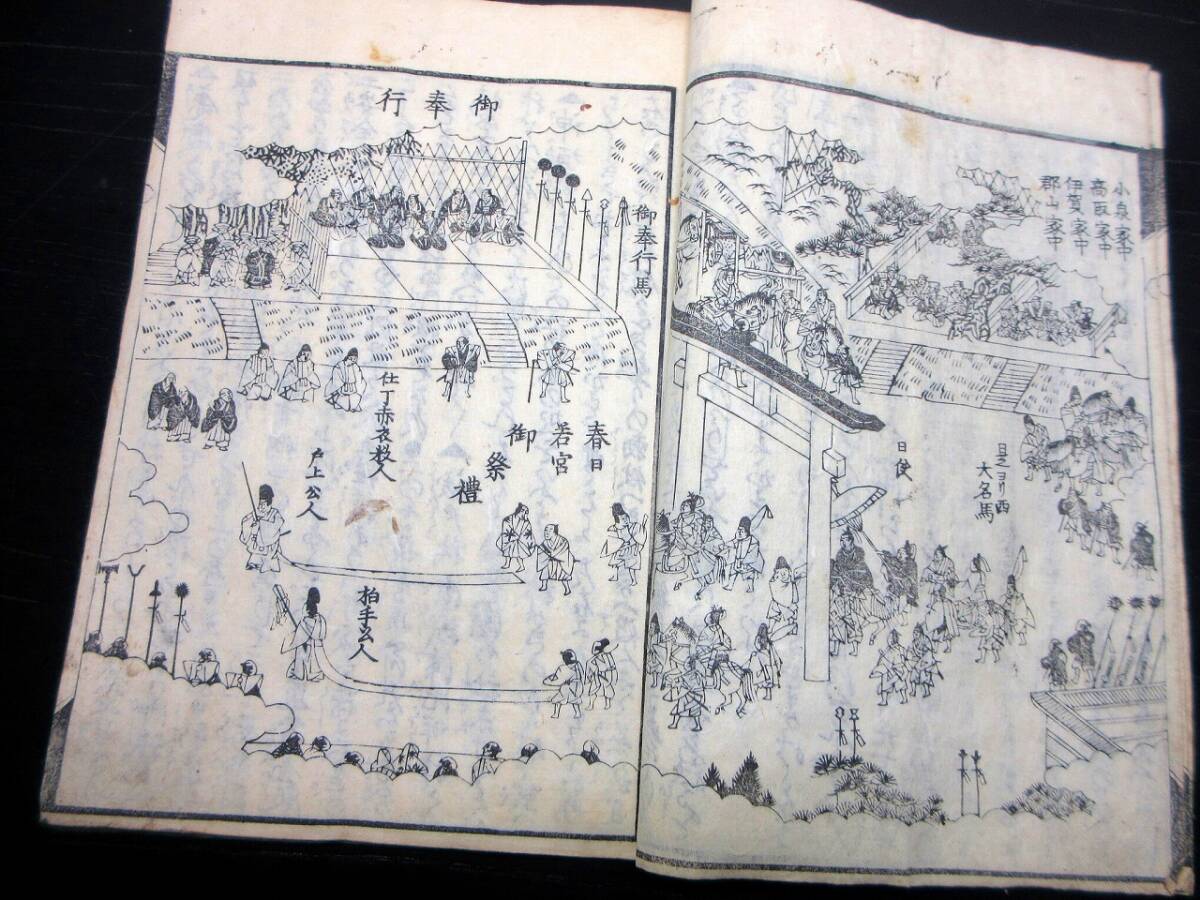 小泉家中
高取家中
伊賀家中
郡山家中
是ヨリ西
大名馬
日使
御奉行
御奉行馬
春日
若宮
御
祭
禮
仕丁赤衣数人
戸上公人
拍手公人